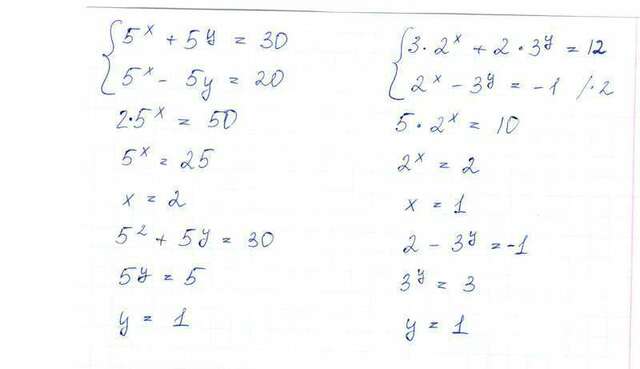 5ˣ + 5y = 30
5ˣ - 5y = 20
2·5ˣ = 50
5ˣ = 25
x = 2
5² + 5y = 30
5y = 5
y = 1
3·2ˣ + 2·3ʸ = 12
2ˣ - 3ʸ = -1 /·2
5·2ˣ = 10
2ˣ = 2
x = 1
2 - 3ʸ = -1
3ʸ = 3
y = 1